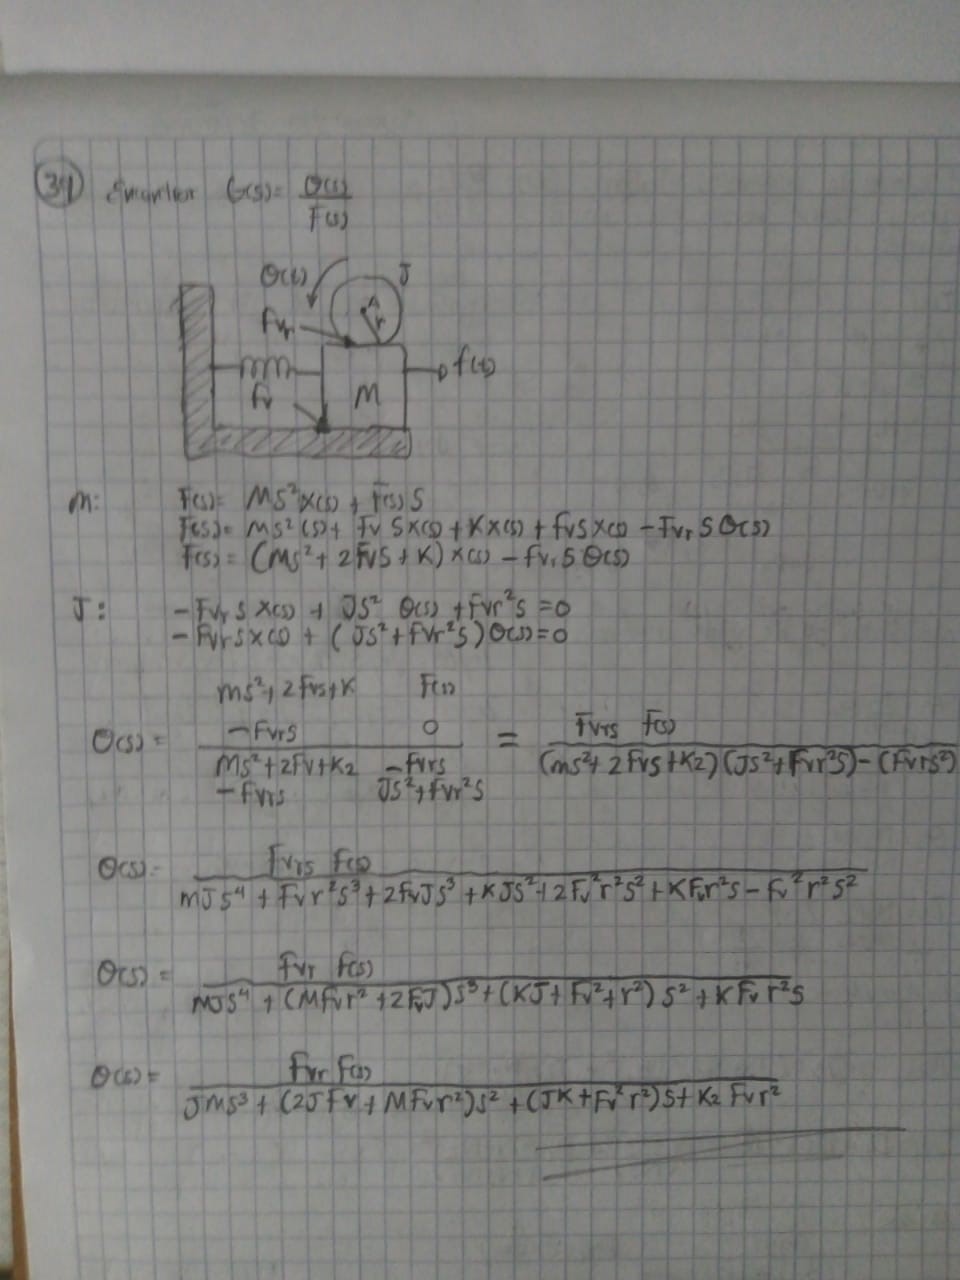 39 G(s)= θ(s)
F(s)
θ(t) J
r
Fv
fv M f(t)
M: F(s)= MS²X(s) + F(s)S
F(s)= MS²(S)+ Fv SX(s) + KX(s) + fvSX(s) - Fvr S θ(s)
F(s)= (MS²+ 2FvS + K) X(s) - fvrS θ(s)
J: -Fvr S X(s) + JS² θ(s) + Fvr²S =0
-FvrSX(s) + (JS²+FVr²S) θ(s)=0
MS²+2FvS+K F(s)
θ(s)= -FvrS 0 = FvrS F(s)
MS²+2Fv+K2 -FvrS (MS²+ 2FvS+K2)(JS²+Fvr²S)-(FvrS²)
-FvrS JS²+Fvr²S
θ(s)= FvrS F(s)
MJS⁴ + Fvr²S³+2FvJS³ +KJS²+2Fv²r²S²+KFvr²S-Fv²r²S²
θ(s)= Fvr F(s)
MJS⁴ + (MFvr²+2FvJ)S³+(KJ+Fv²+r²) S²+KFv r²S
θ(s)= Fvr F(s)
JMS³+ (2JFv+MFvr²)S²+(JK+Fv²r²)S+K2 Fvr²